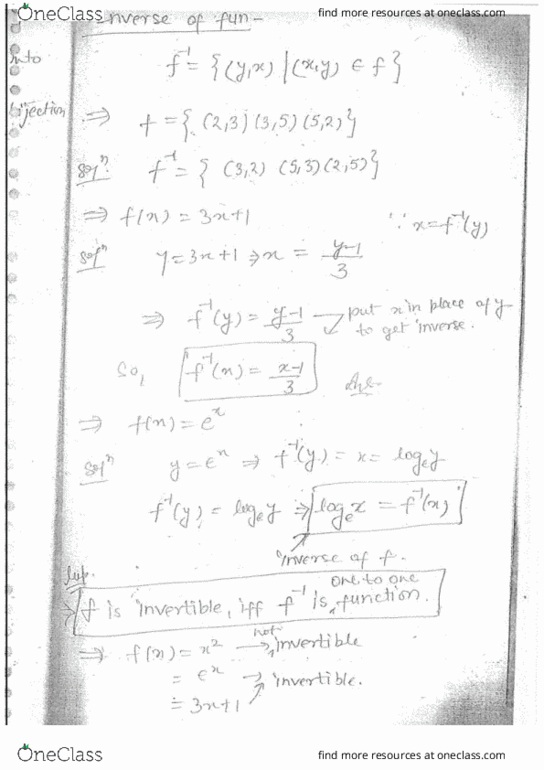 OneClass
find more resources at oneclass.com
Inverse of fun-
into
bijection
f⁻¹ = {(y,x) | (x,y) ∈ f}
⇒ f = {(2,3) (3,5) (5,2)}
Solⁿ. f⁻¹ = { (3,2) (5,3) (2,5)}
⇒ f(x) = 3x+1
∵ x = f⁻¹(y)
Solⁿ y = 3x+1 ⇒ x = (y-1)/3
⇒ f⁻¹(y) = (y-1)/3 → put x in place of y
to get inverse.
So, f⁻¹(x) = (x-1)/3 Ans
⇒ f(x) = eˣ
Solⁿ y = eˣ ⇒ f⁻¹(y) = x = logₑy
f⁻¹(y) = logₑy ⇒ logₑx = f⁻¹(x)
inverse of f.
Imp.
one to one
f is invertible, iff f⁻¹ is function.
⇒ f(x) = x² → not invertible
= eˣ → invertible.
= 3x+1
OneClass
find more resources at oneclass.com